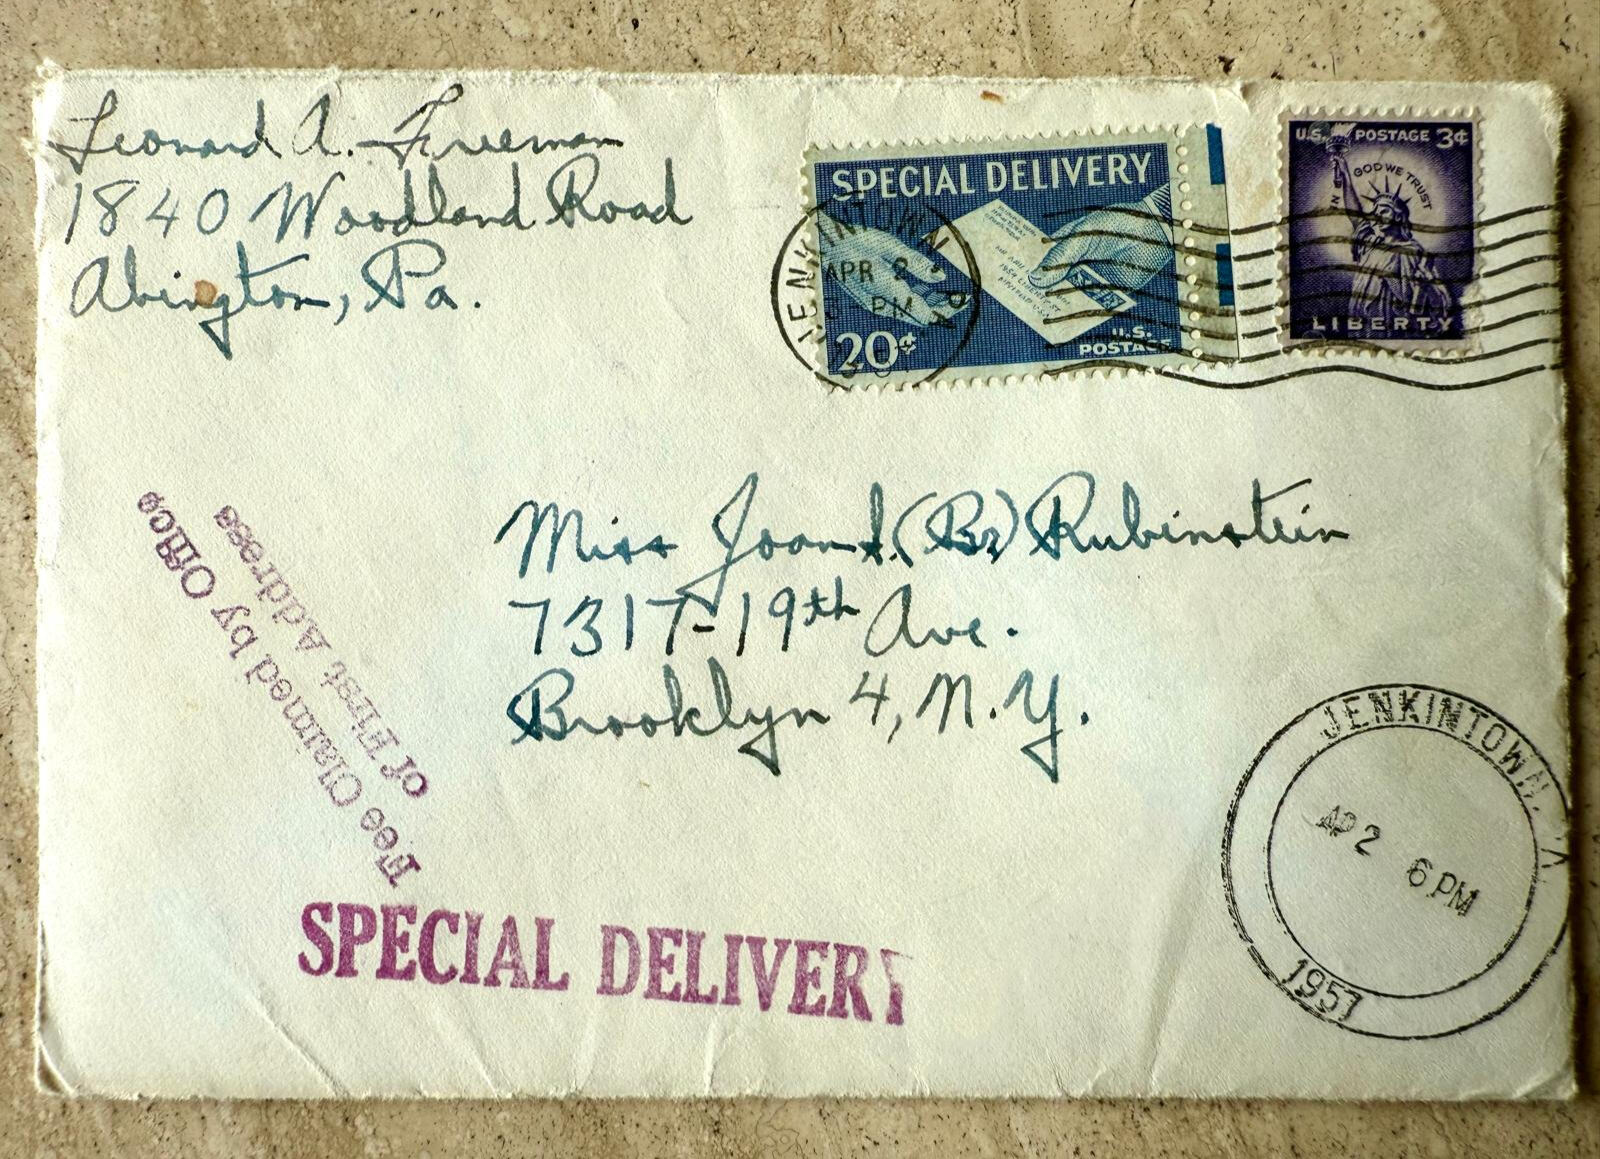 Leonard A. Freeman
1840 Woodland Road
Abington, Pa.
SPECIAL DELIVERY
20¢
U.S.
POSTAGE
JENKINTOWN, PA
APR 2
PM
U.S. POSTAGE 3¢
IN GOD WE TRUST
LIBERTY
Miss Joan (Bz) Rubinstein
7317-19th Ave.
Brooklyn 4, N.Y.
Fee Claimed by Office
of First Address
SPECIAL DELIVERY
JENKINTOWN,
AP 2 6 PM
1957